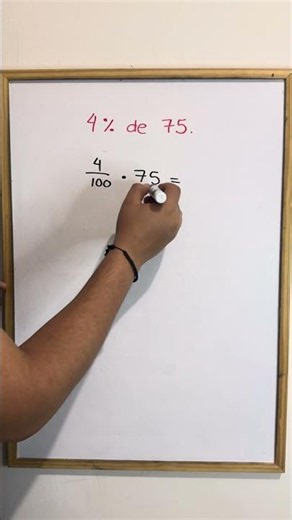 4% de 75.
4
100
· 75 =